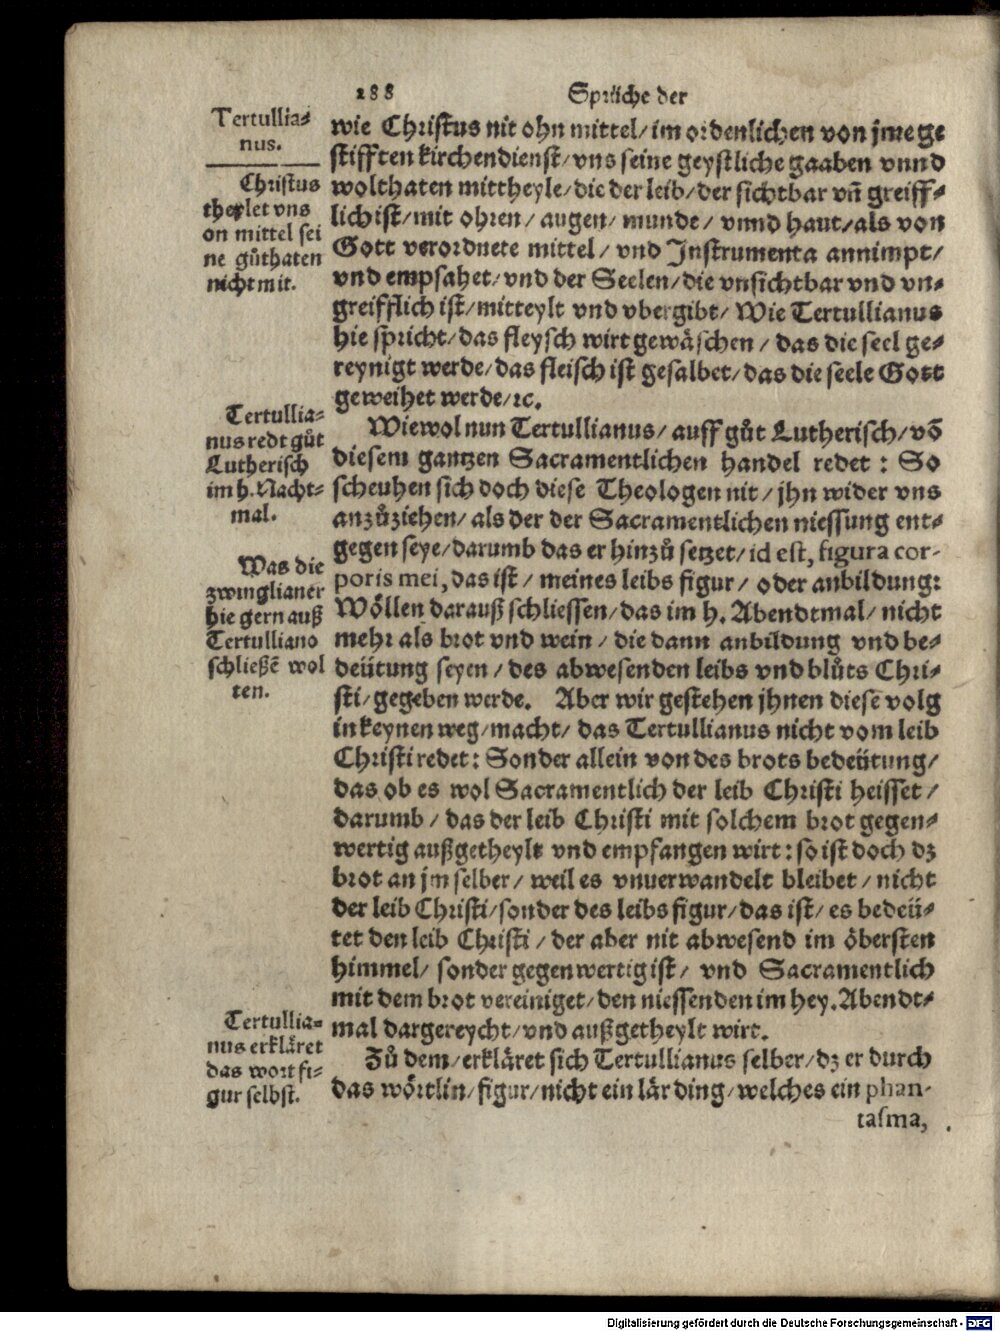 188 Sprüche der
Tertullia=
nus.
Christus
theylet vns
on mittel sei
ne gůthaten
nicht mit.
wie Christus nit ohn mittel/ im ordenlichen von jme ge
stifften kirchendienst/ vns seine geystliche gaaben vnnd
wolthaten mittheyle/ die der leib/ der sichtbar vñ greiff=
lich ist/ mit ohren/ augen/ munde/ vnnd haut/ als von
Gott verordnete mittel/ vnd Instrumenta annimpt/
vnd empfahet/ vnd der Seelen/ die vnsichtbar vnd vn=
greifflich ist/ mitteylt vnd vbergibt/ Wie Tertullianus
hie spricht/ das fleysch wirt gewäschen/ das die seel ge=
reynigt werde/ das fleisch ist gesalbet/ das die seele Gott
geweihet werde/ ꝛc.
Tertullia=
nus redt gůt
Lutherisch
im h. Nacht=
mal.
Wiewol nun Tertullianus/ auff gůt Lutherisch/ võ
diesem gantzen Sacramentlichen handel redet: So
scheuhen sich doch diese Theologen nit/ jhn wider vns
anzůziehen/ als der der Sacramentlichen niessung ent=
gegen seye/ darumb das er hinzů setzet/ id est, figura cor-
poris mei, das ist/ meines leibs figur/ oder anbildung:
Was die
zwinglianer
hie gern auß
Tertulliano
schließẽ wol
ten.
Wöllen darauß schliessen/ das im h. Abendtmal/ nicht
mehr als brot vnd wein/ die dann anbildung vnd be=
deütung seyen/ des abwesenden leibs vnd blůts Chri=
sti/ gegeben werde. Aber wir gestehen jhnen diese volg
in keynen weg/ macht/ das Tertullianus nicht vom leib
Christi redet: Sonder allein von des brots bedeütung/
das ob es wol Sacramentlich der leib Christi heisset/
darumb/ das der leib Christi mit solchem brot gegen=
wertig außgetheylt vnd empfangen wirt: so ist doch dz
brot an jm selber/ weil es vnuerwandelt bleibet/ nicht
der leib Christi/ sonder des leibs figur/ das ist/ es bedeü=
tet den leib Christi/ der aber nit abwesend im öbersten
himmel/ sonder gegenwertig ist/ vnd Sacramentlich
mit dem brot vereiniget/ den niessenden im hey. Abendt=
mal dargereycht/ vnd außgetheylt wirt.
Tertullia=
nus erkläret
das wort fi=
gur selbst.
Zů dem/ erkläret sich Tertullianus selber/ dz er durch
das wörtlin/ figur/ nicht ein lär ding/ welches ein phan-
tasma,
Digitalisierung gefördert durch die Deutsche Forschungsgemeinschaft - DFG